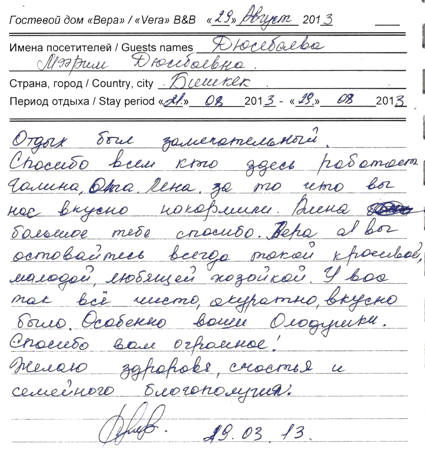 Гостевой дом «Вера» / «Vera» B&B «29» Август 2013
Имена посетителей / Guests names Дюсебаева
Мээрим Дюсебаевна.
Страна, город / Country, city Бишкек
Период отдыха / Stay period «21» 08 2013 - «29» 08 2013
Отдых был замечательный.
Спасибо всем кто здесь работает
Галина, Ольга, Лена. за то что вы
нас вкусно накормили.
большое тебе спасибо. Вера а вы
оставайтесь всегда такой красивой,
молодой, любящей хозяйкой. У вас
так всё чисто, акуратно, вкусно
было. Особенно ваши Оладушки.
Спасибо вам огромное!
Желаю здоровье, счастья и
семейного благополучия.
29.03.13.